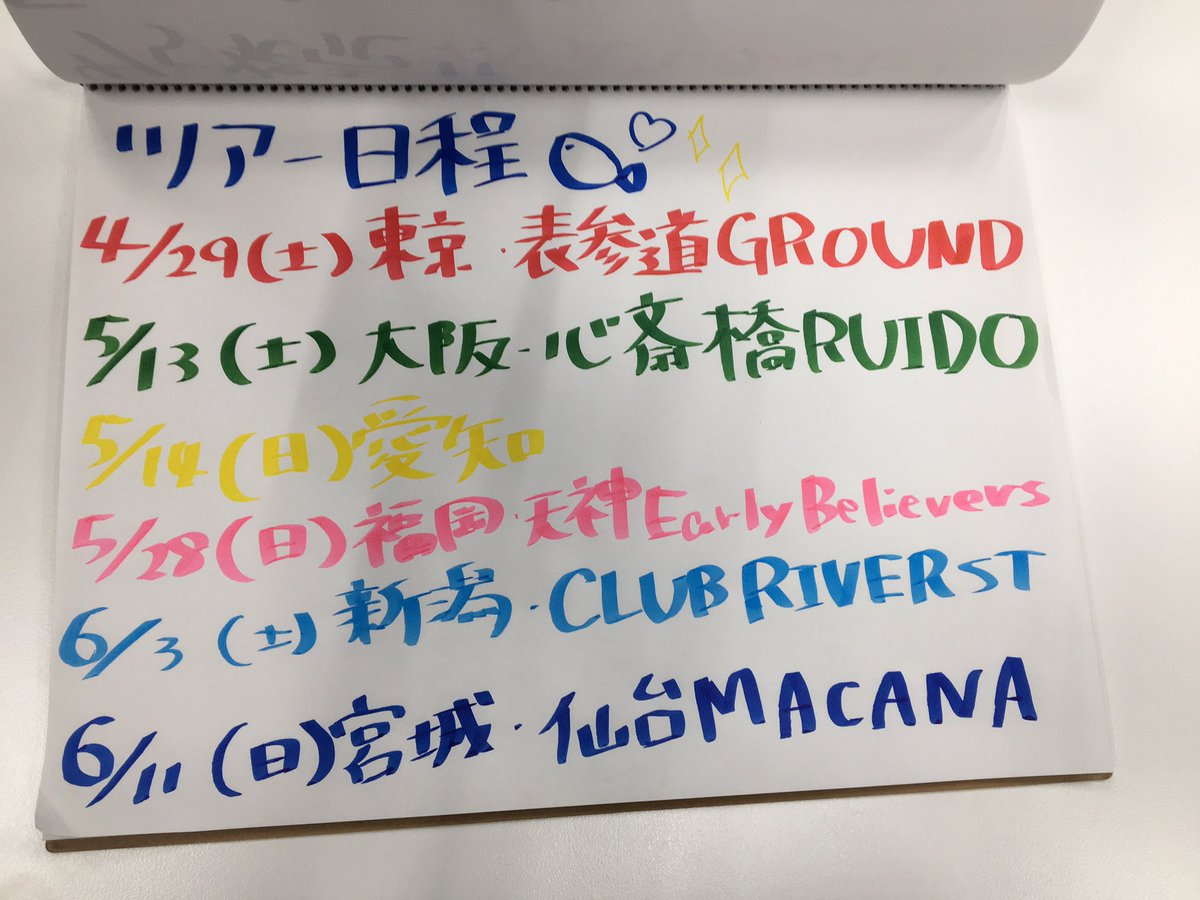 ツアー日程
4/29(土)東京・表参道GROUND
5/13(土)大阪・心斎橋RUIDO
5/14(日)愛知
5/28(日)福岡・天神Early Believers
6/3(土)新潟・CLUB RIVERST
6/11(日)宮城・仙台MACANA